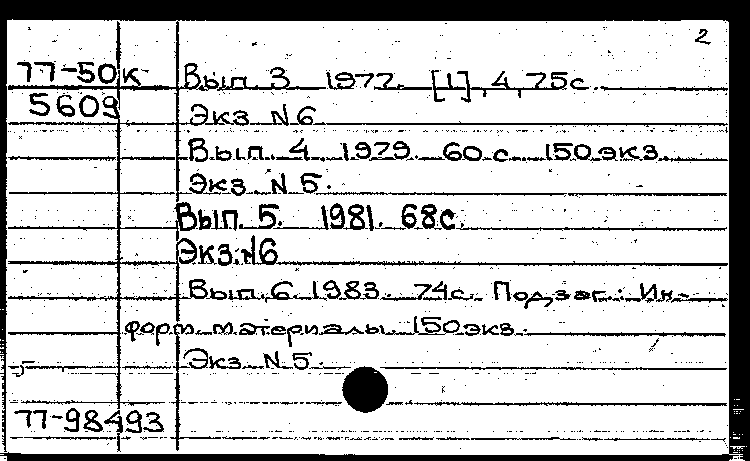 2
77-50к Вып. 3 1977. [1], 4, 75с.
5609 Экз N 6
Вып. 4 1979. 60 с. 150 экз.
Экз. N 5.
Вып. 5. 1981. 68с.
Экз. N6
Вып. 6 1983. 74с. Подзаг.: Ин-
форм. материалы. 150экз.
Экз N 5.
77-98493